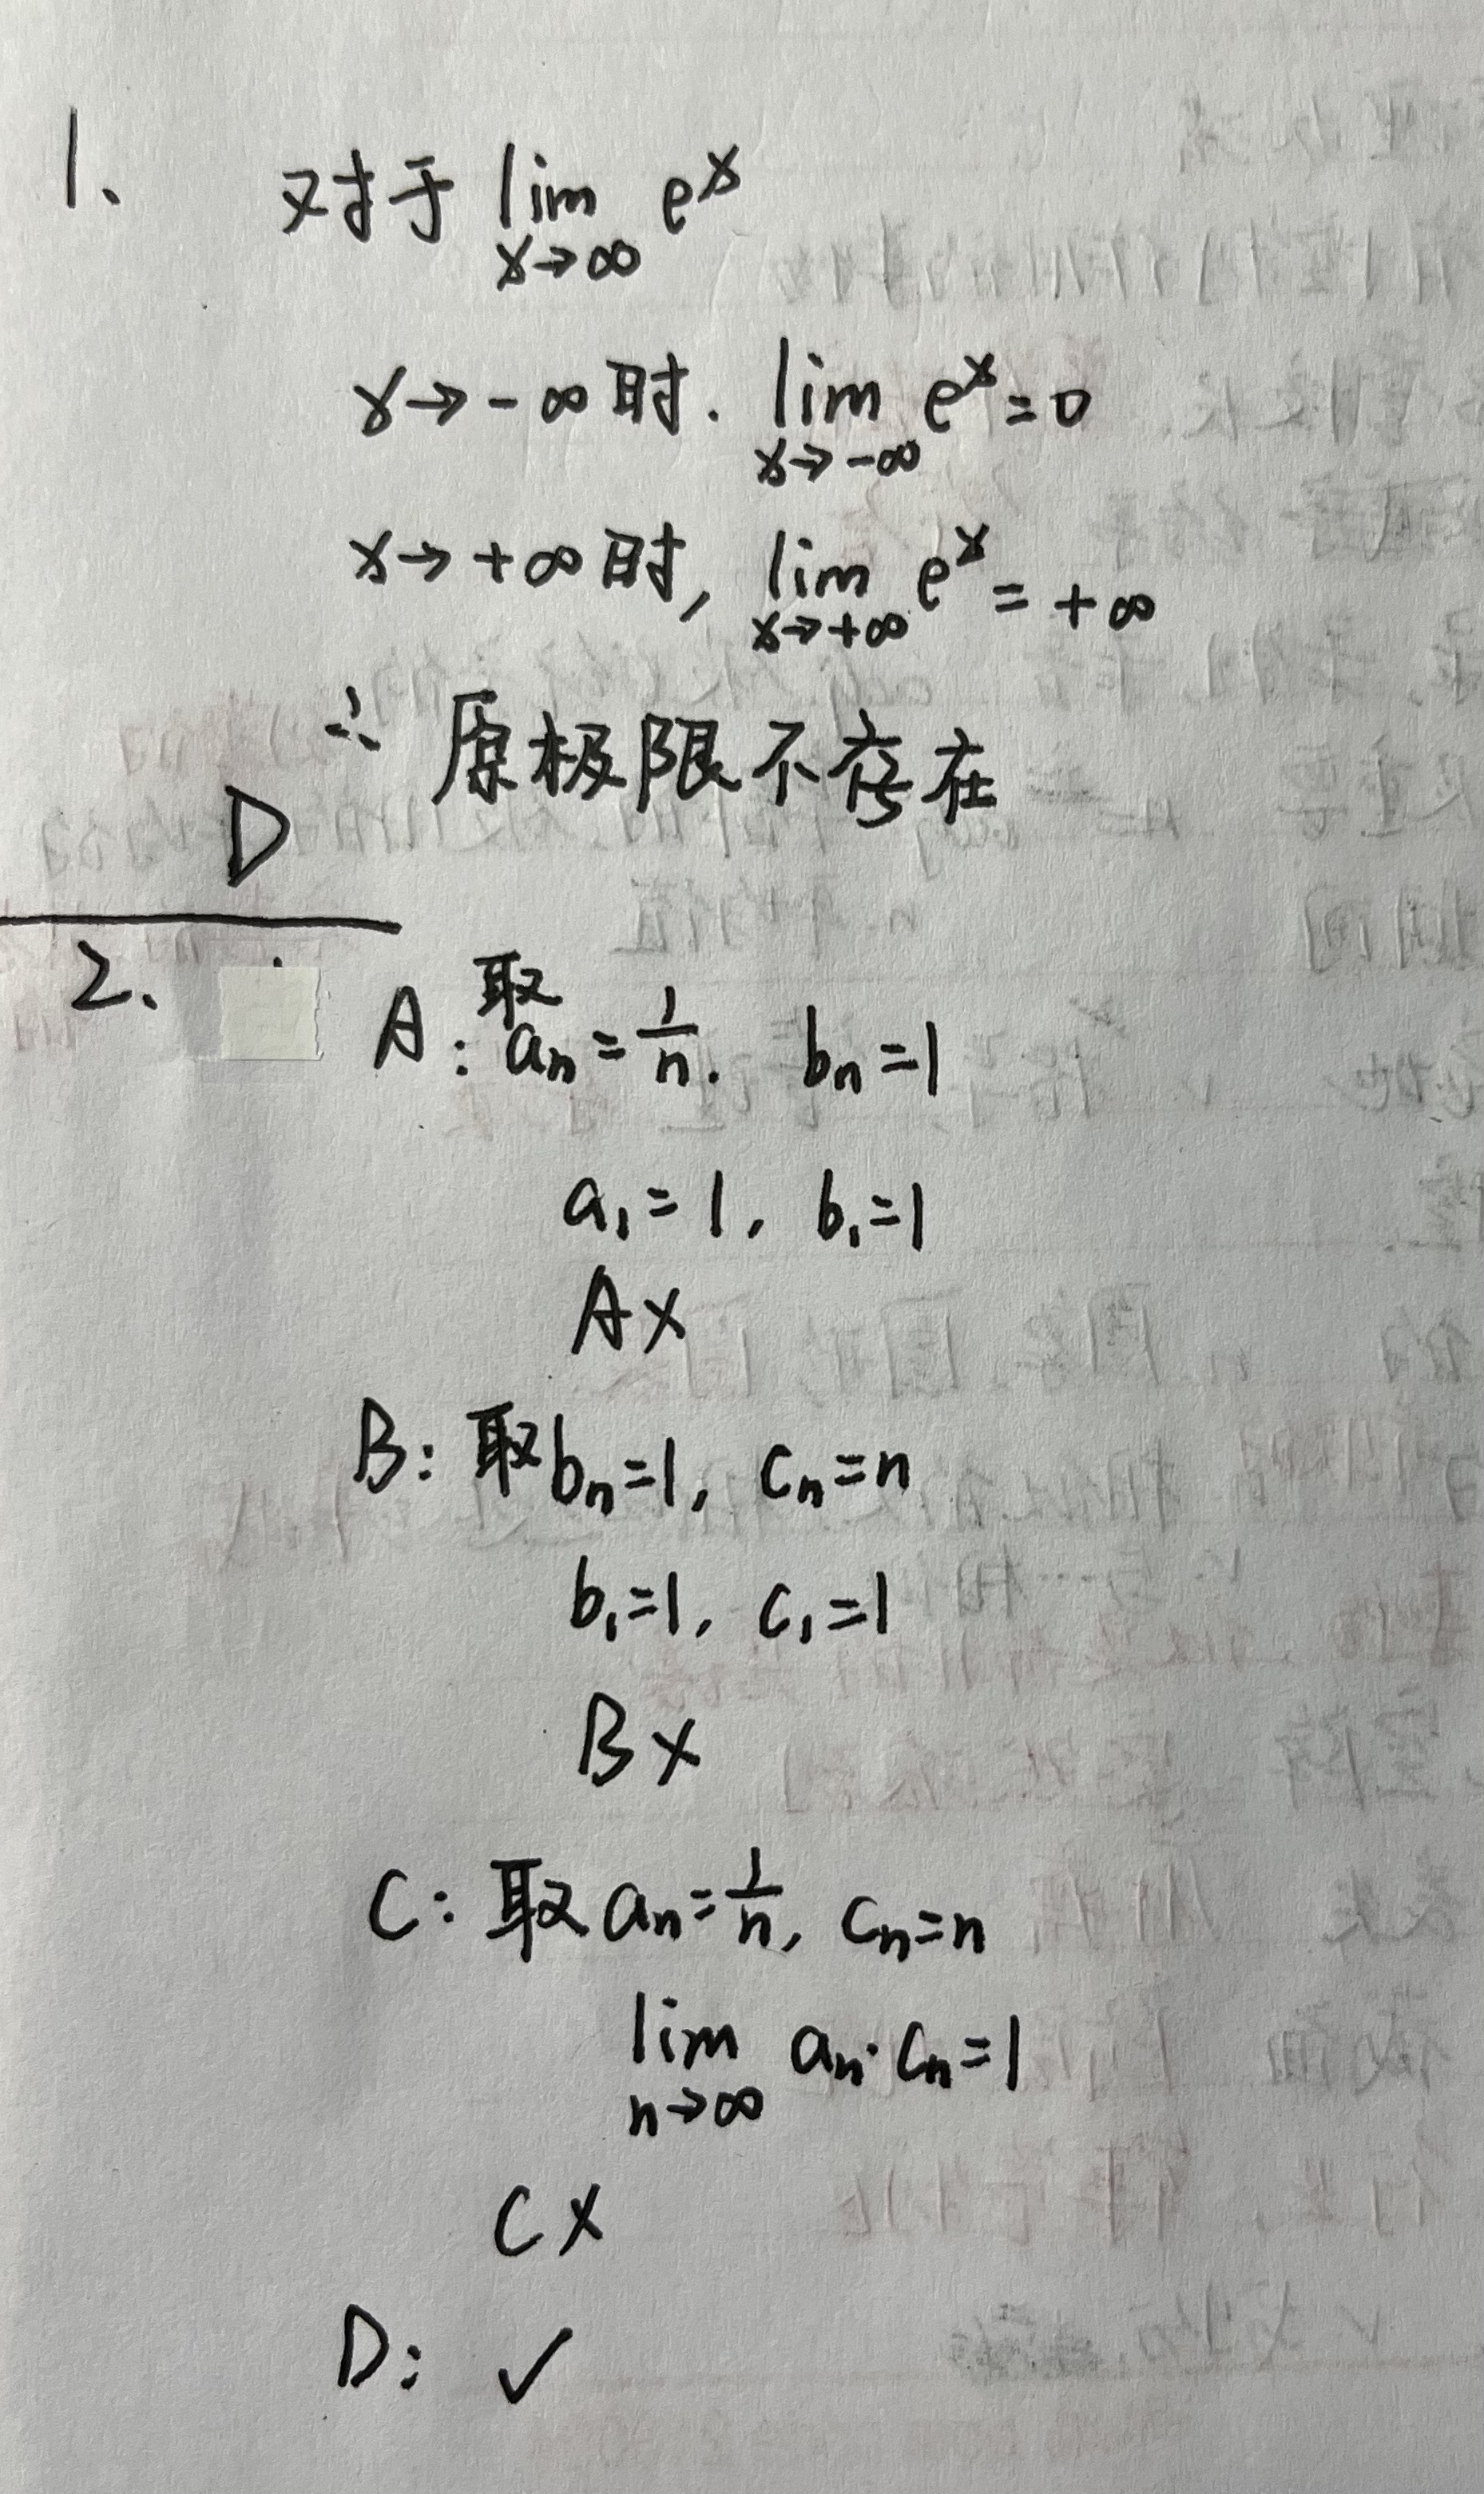 1、 对于 lim e^x
x→∞
x→-∞时. lim e^x=0
x→-∞
x→+∞时, lim e^x=+∞
x→+∞
∴ 原极限不存在
D
2、 A: 取 aₙ=1/n. bₙ=1
a₁=1, b₁=1
A×
B: 取bₙ=1, cₙ=n
b₁=1, c₁=1
B×
C: 取 aₙ=1/n, cₙ=n
lim aₙ·cₙ=1
n→∞
C×
D: ✓